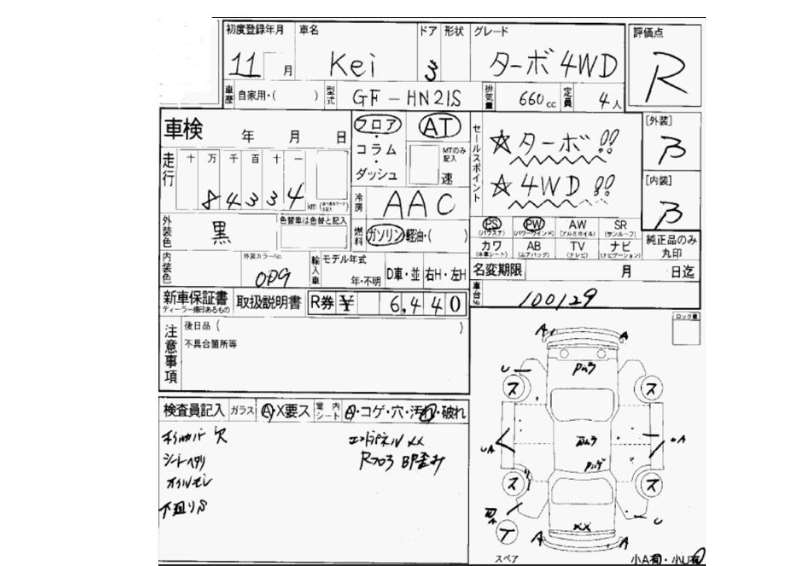 初度登録年月 車名 ドア 形状 グレード 評価点
11 月 Kei 3 ターボ 4WD R
車歴 自家用・( ) 型式 GF-HN21S 排気量 660cc 定員 4人
車検 年 月 日 フロア AT セールスポイント ☆ターボ!! [外装] B
走行 十 万 千 百 十 一 コラム MTのみ記入
8 4 3 3 4 km ダッシュ 速 ☆4WD!! [内装] B
冷房 AAC
外装色 黒 色替車は色替と記入 燃料 ガソリン・軽油・( )
PS (パワステ) PW (パワーウインド) AW (アルミホイル) SR (サンルーフ) 純正品のみ丸印
カワ (本革シート) AB (エアバッグ) TV (テレビ) ナビ (ナビゲーション)
内装色 外装カラーNo. 0D9 輸入車 モデル年式 年・不明 D車・並 右H・左H 名変期限 月 日迄
新車保証書 ディーラー捺印あるもの 取扱説明書 R券 ¥ 6,440 車台No. 100129
注意事項 後日品 ( )
不具合箇所等
ロック量
検査員記入 ガラス A・X要ス 室内シート 日・コゲ・穴・汚れ・破れ
穴 エンドパネル XX
シートヘタリ
下廻りS
A A
U ス ス
UA A
ス ス
U
A XX A
スペア 小A有・小U有